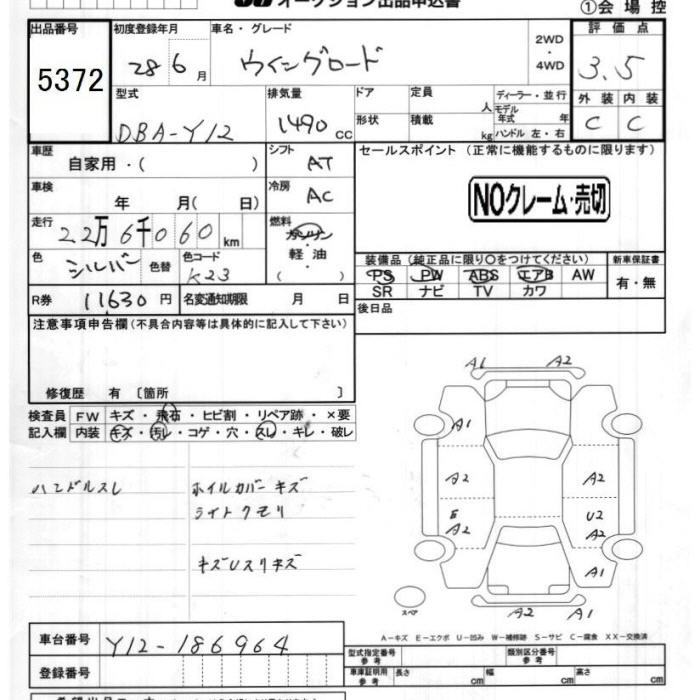 オークション出品申込書
①会場控
出品番号 初度登録年月 車名・グレード 2WD・4WD 評価点
5372 28 6月 ウイングロード 3.5
型式 排気量 ドア 定員 人 ディーラー・並行 外装 内装
DBA-Y12 1490 cc 形状 積載 kg モデル年式 年 ハンドル 左・右 C C
車歴 シフト セールスポイント (正常に機能するものに限ります)
自家用・( ) AT
車検 冷房 NOクレーム・売切
年 月( 日) AC
走行 燃料
22万6千060km ガソリン
色 色替 色コード 軽油 装備品(純正品に限り○をつけてください) 新車保証書
シルバー K23 ( ) PS PW ABS エアB AW 有・無
SR ナビ TV カワ
R券 11630円 名変通知期限 月 日 後日品
注意事項申告欄(不具合内容等は具体的に記入して下さい)
修復歴 有 〔箇所 〕
検査員 FW キズ・飛石・ヒビ割・リペア跡・×要
記入欄 内装 キズ・汚レ・コゲ・穴・スレ・キレ・破レ
ハンドルスレ ホイルカバーキズ
ライトクモリ
キズUスリキズ
A1 A2
A1
A2 A2
E U2
A2 A2
A1
スペア
A2 A1
A-キズ E-エクボ U-凹み W-補修跡 S-サビ C-腐食 XX-交換済
車台番号 Y12-186964
型式指定番号 参考 類別区分番号 参考
登録番号 車庫証明用 参考 長さ cm 幅 cm 高さ cm